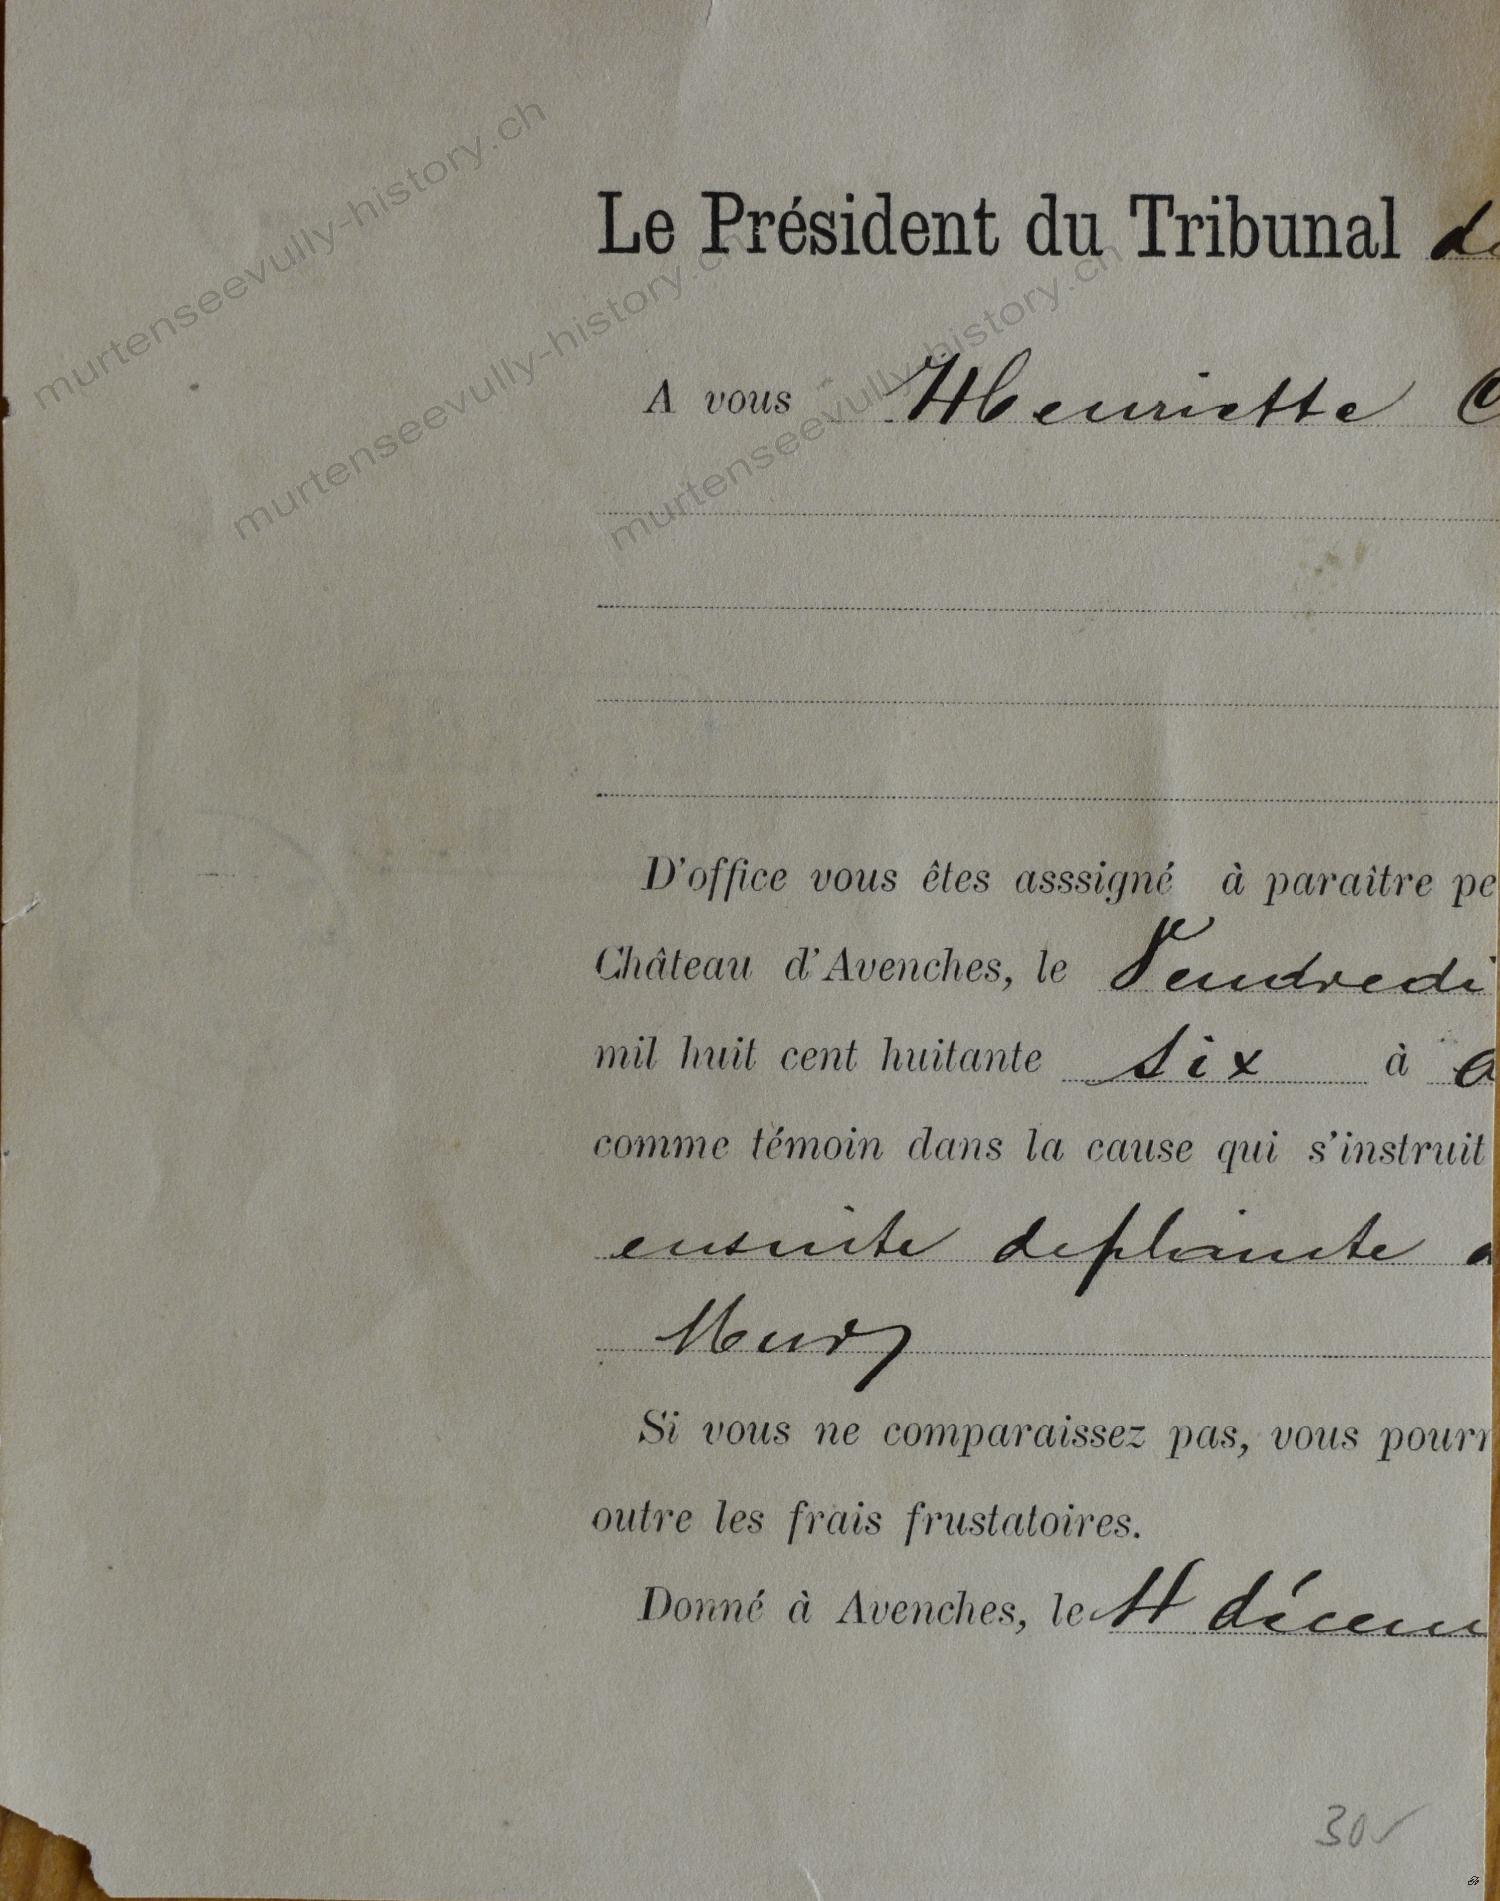 Le Président du Tribunal de
A vous Henriette
D'office vous êtes asssigné à paraître pe
Château d'Avenches, le Vendredi
mil huit cent huitante six à
comme témoin dans la cause qui s'instruit
ensuite de plainte
Mury
Si vous ne comparaissez pas, vous pourr
outre les frais frustatoires.
Donné à Avenches, le décem
30
murtenseevully-history.ch
murtenseevully-history.ch
murtenseevully-history.ch